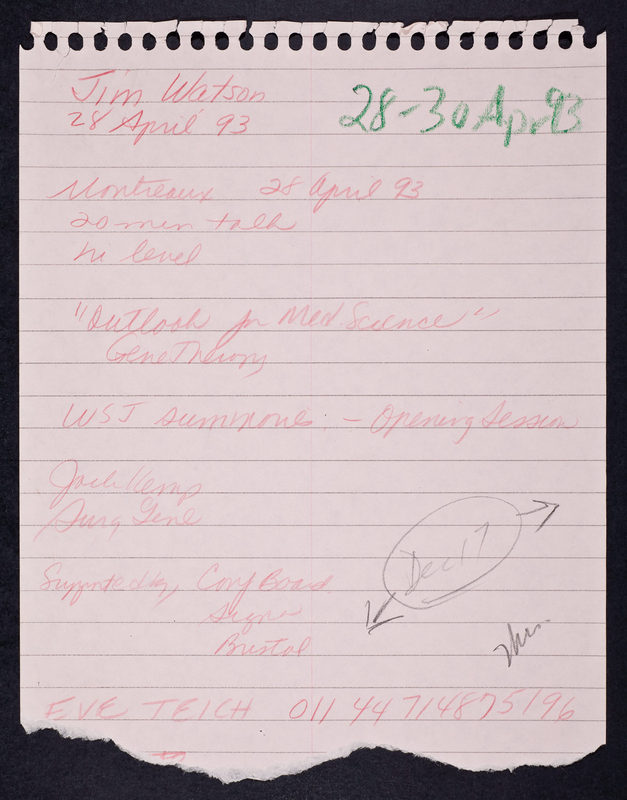 Jim Watson
28 April 93
28-30 Apr 93
Montreaux 28 April 93
20 min talk
hi level
"Outlook for Med. Science"
Gene Therapy
WSJ summons - Opening Session
Jack Kemp
Surg Gene
Supported by, Conf Board
Bristol
Dec 17
EVE TEICH 011 44 714875196